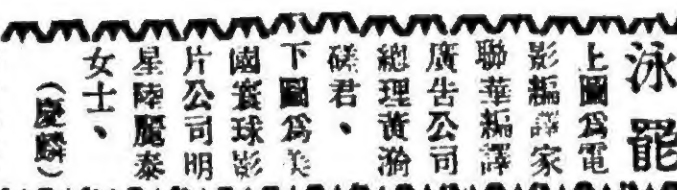 泳罷
上圖為電
影編譯家
聯華編譯
廣告公司
總理黃漪
磋君、
下圖為美
國寰球影
片公司明
星陸麗泰
女士、
（慶麟）